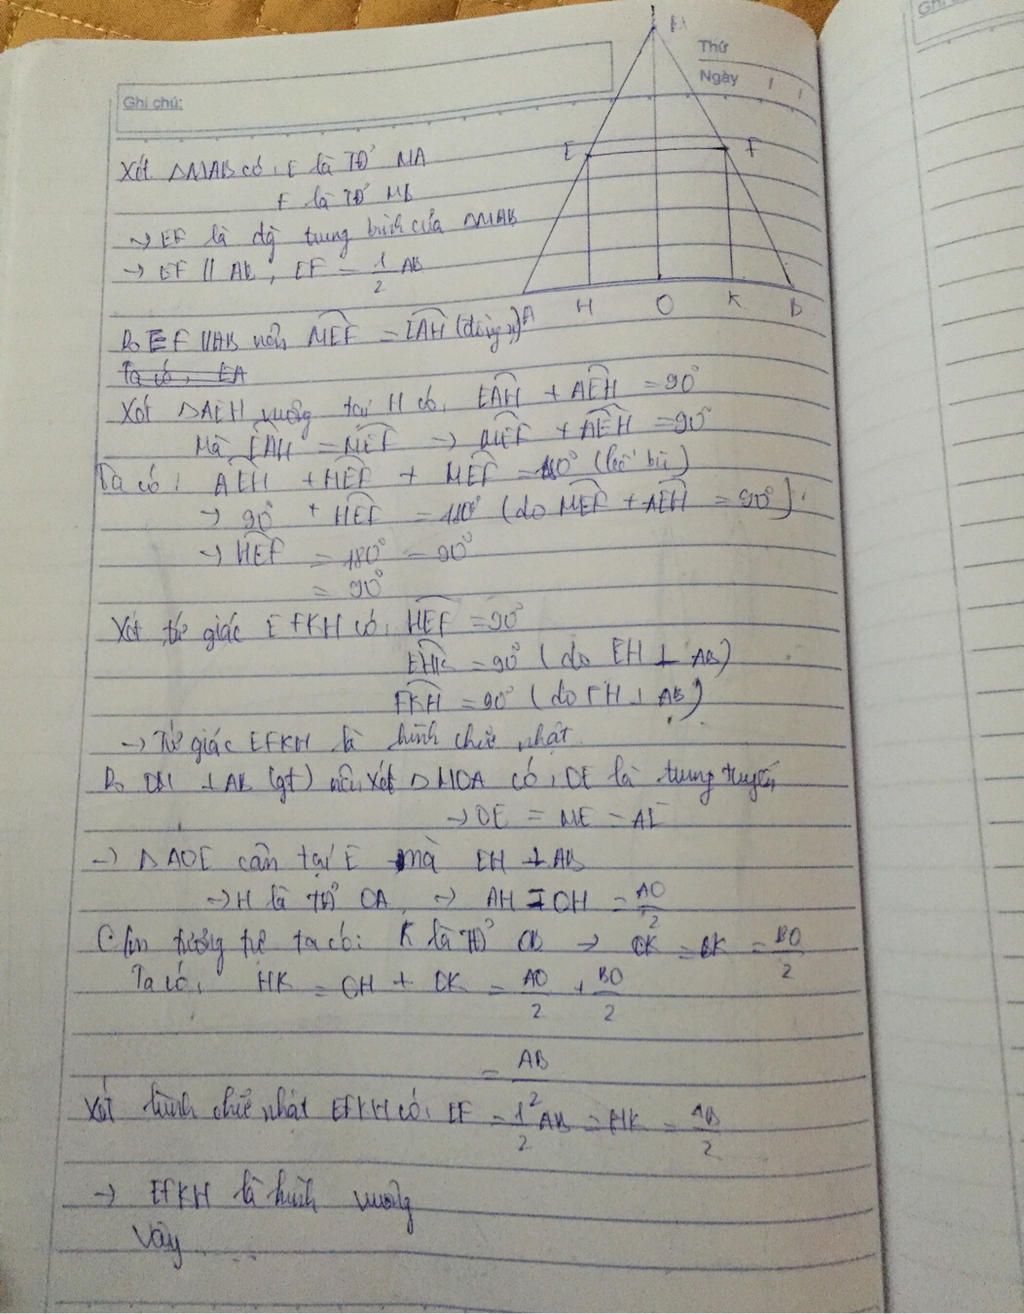 Ghi chú:
Thứ
Ngày
M
E
F
A
H
O
K
B
Xét ΔMAB có: E là TĐ' MA
F là TĐ' MB
→ EF là độ trung bình của ΔMAB
→ EF // AB, EF = 1/2 AB
Do EF // AB nên MEF = EAH (đồng vị)
Ta có: EA
Xét ΔAEH vuông tại H có: EAH + AEH = 90°
Mà EAH = MEF → MEF + AEH = 90°
Ta có: AEH + HEF + MEF = 180° (kề bù)
→ 90° + HEF = 180° (do MEF + AEH = 90°)
→ HEF = 180° - 90°
= 90°
Xét tứ giác EFKH có: HEF = 90°
EHK = 90° (do EH ⊥ AB)
FKH = 90° (do FH ⊥ AB)
→ Tứ giác EFKH là hình chữ nhật
Do OM ⊥ AB (gt) nên xét ΔMOA có: OE là trung tuyến
→ OE = ME = AE
→ ΔAOE cân tại E mà EH ⊥ AB
→ H là TĐ' OA → AH = OH = AO/2
tương tự ta có: K là TĐ' OB → OK = BK = BO/2
Ta có: HK = OH + OK = AO/2 + BO/2
= AB/2
Xét hình chữ nhật EFKH có: EF = 1/2 AB = HK = AB/2
→ EFKH là hình vuông
Vậy